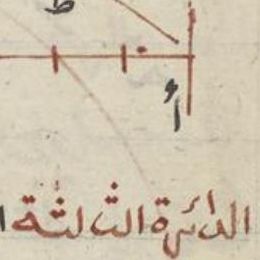 ط
أ
الدائرة الثالثة